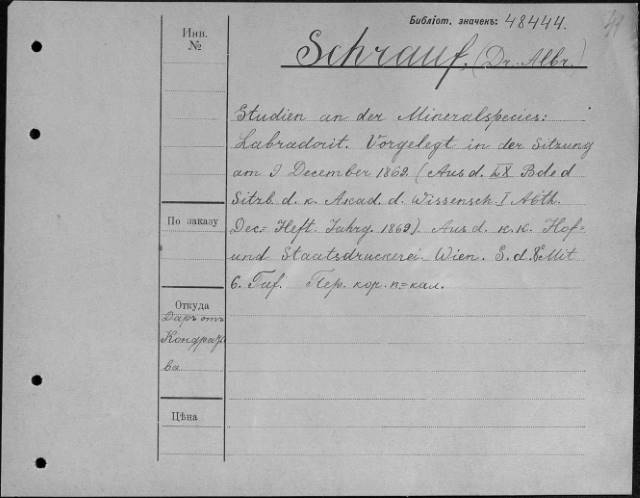 Библіот. значекъ: 48444.
Инв.
№
Schrauf, (Dr. Albr.)
Studien an der Mineralspecies:
Labradorit. Vorgelegt in der Sitzung
am 9 December 1869. (Aus d. LX Bde d
Sitzb. d. k. Akad. d. Wissensch. I Abth.
Dec= Heft. Jahrg. 1869). Aus d. k. k. Hof=
und Staatsdruckerei. Wien. S. d. 8º Mit
6. Taf. Пер. кор. п=кал.
По заказу
Откуда
Даръ отъ
Кондрать
ва
Цѣна